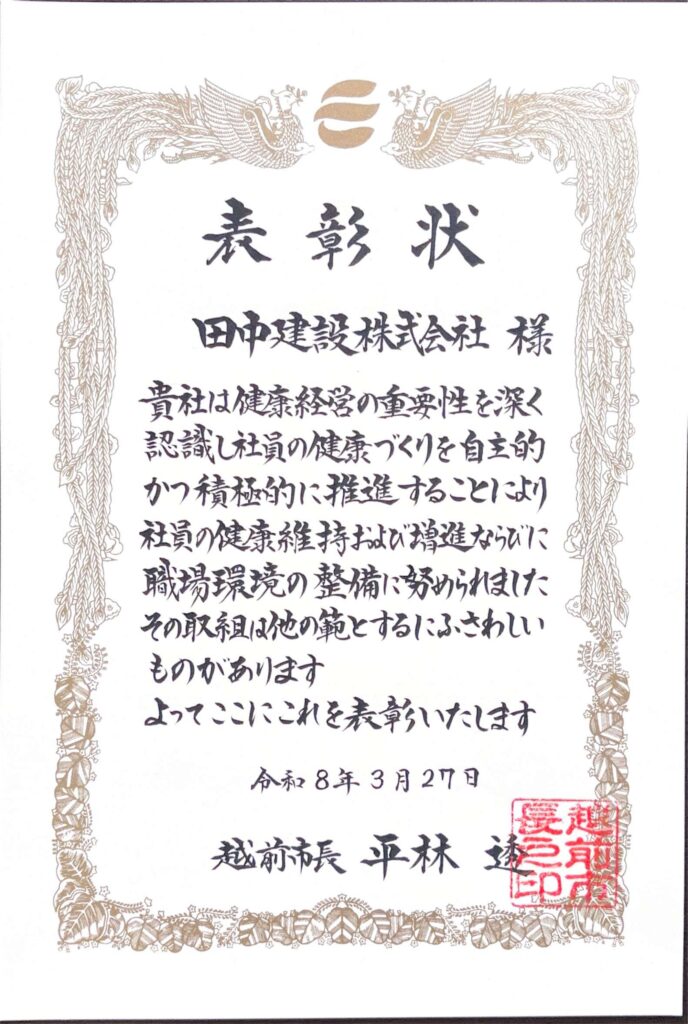 表彰状
田中建設株式会社 様
貴社は健康経営の重要性を深く
認識し社員の健康づくりを自主的
かつ積極的に推進することにより
社員の健康維持および増進ならびに
職場環境の整備に努められました
その取組は他の範とするにふさわしい
ものがあります
よってここにこれを表彰いたします
令和8年3月27日
越前市長 平林 透
越前市長之印